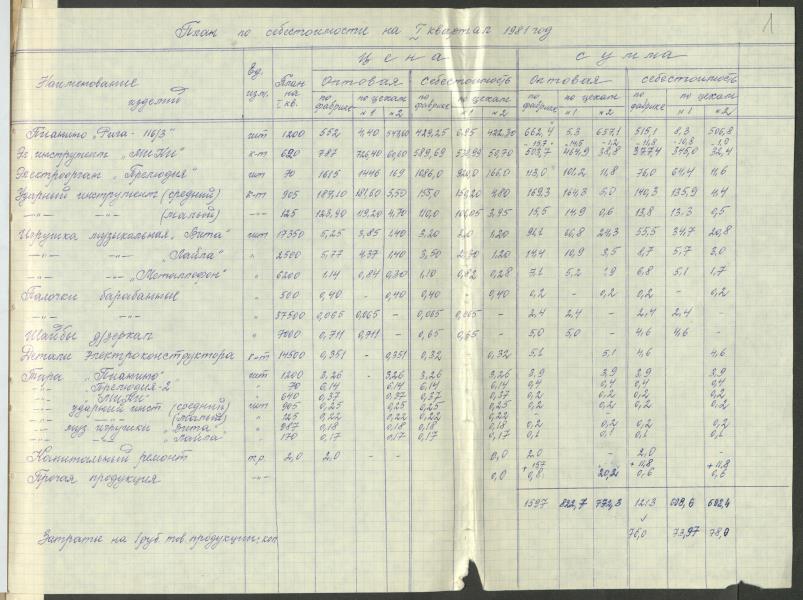 1
План по себестоимости на I квартал 1981 год
Цена сумма
Наименование изделий Ед. изм. План на I кв. Оптовая себестоимость Оптовая себестоимость
по фабрике по цехам по фабрике по цехам по фабрике по цехам по фабрике по цехам
N1 N2 N1 N2 N1 N2 N1 N2
Пианино „Рига - 116/3" шт 1200 552 4,40 547,60 429,25 6,95 422,30 662,4 5,3 657,1 515,1 8,3 506,8
Эл. инструмент „МиКи" к-т 640 787 726,40 60,60 589,69 50,70 503,7 464,9 38,8 377,4 345,0 32,4
Электроорган „Прелюдия" шт 70 1615 1446 169 1086,0 920,0 166,0 113,0 101,2 11,8 76,0 64,4 11,6
Ударный инструмент (средний) к-т 905 187,10 181,60 5,50 155,0 150,20 4,80 169,3 164,3 5,0 140,3 135,9 4,4
-"- -"- (малый) -"- 125 123,90 119,20 4,70 110,0 3,95 15,5 14,9 0,6 13,8 13,3 0,5
Игрушка музыкальная „Вита" шт 17350 5,25 3,85 1,40 3,20 2,0 1,20 91,1 66,8 24,3 55,5 34,7 20,8
-"- -"- „Лайла" " 2500 5,77 4,37 1,40 3,50 2,30 1,20 14,4 10,9 3,5 8,7 5,7 3,0
-"- -"- „Металлофон" " 6200 1,14 0,84 0,30 1,10 0,82 0,28 7,1 5,2 1,9 6,8 5,1 1,7
Палочки барабанные " 500 0,40 - 0,40 0,40 - 0,40 0,2 - 0,2 0,2 - 0,2
-"- -"- " 37500 0,065 0,065 - 0,065 0,065 - 2,4 2,4 - 2,4 2,4 -
Шайбы д/зеркал " 7000 0,711 0,711 - 0,65 0,65 - 5,0 5,0 - 4,6 4,6 -
Детали Электроконструктора к-т 14500 0,351 - 0,351 0,32 0,32 5,1 5,1 4,6 4,6
Тара „Пианино" шт 1200 3,26 - 3,26 3,26 3,26 3,9 3,9 3,9 3,9
-"- „Прелюдия-2" " 70 6,14 6,14 6,14 6,14 0,4 0,4 0,4 0,4
-"- „МиКи" " 640 0,37 0,37 0,37 0,37 0,2 0,2 0,2 0,2
-"- ударный инст. (средний) шт 905 0,25 0,25 0,25 0,25 0,2 0,2 0,2 0,2
-"- -"- (малый) " 125 0,22 0,22 0,22 0,22 - - -
-"- муз. игрушки „Вита" " 987 0,18 0,18 0,18 0,18 0,2 0,2 0,2 0,2
-"- -"- „Лайла" " 170 0,17 0,17 0,17 0,17 0,1 0,1 0,1 0,1
Капитальный ремонт т.р. 2,0 2,0 - - 0,0 2,0 - 2,0 -
Прочая продукция -"- 0,0 +15,7 0,8 20,2 +11,8 0,6 +11,8 0,6
1597 822,7 772,3 1213 608,6
Затраты на 1 руб. тов. продукции, коп 76,0 73,97 78,0